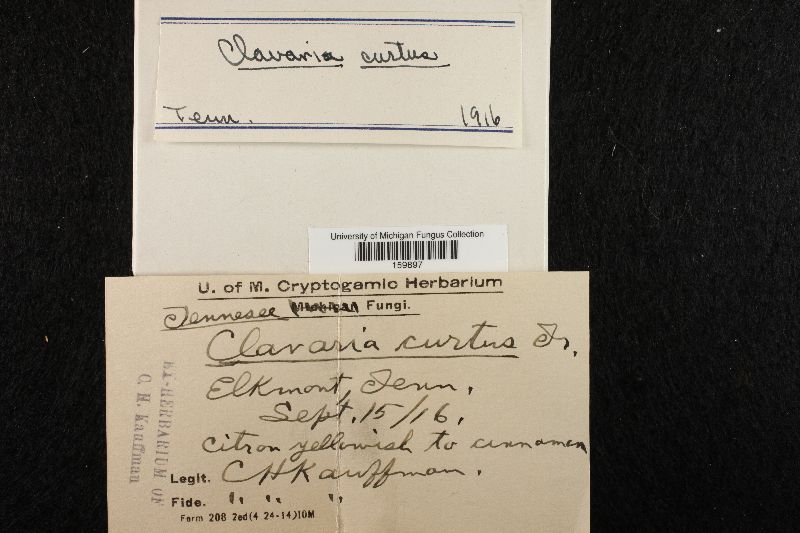 Clavaria curtus
Tenn. 1916
University of Michigan Fungus Collection
159897
U. of M. Cryptogamic Herbarium
Tennesee Michigan Fungi.
Clavaria curtus Fr.
Elkmont, Tenn.
Sept. 15/16.
citron yellowish to cinnamon
Legit. C H Kauffman.
Fide. " " "
Form 208 2ed(4 24-14)10M
EX-HERBARIUM OF
C. H. Kauffman